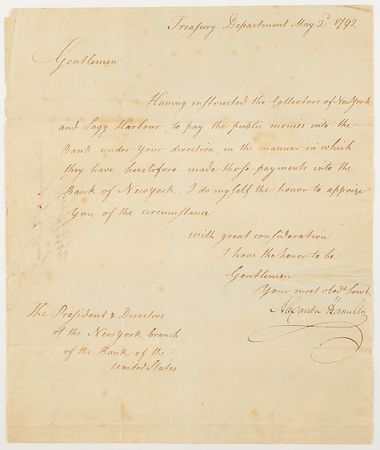 Treasury Department May 2d 1792
Gentlemen
Having instructed the Collectors of New York
and Sagg Harbour, to pay the public monies into the
Bank under your direction in the manner in which
they have heretofore made those payments into the
Bank of New York, I do myself the honor to apprize
you of the circumstance
with great consideration
I have the honor to be
Gentlemen
Your most obedt Servt
Alexander Hamilton
The President & Directors
of the New York branch
of the Bank of the
United States